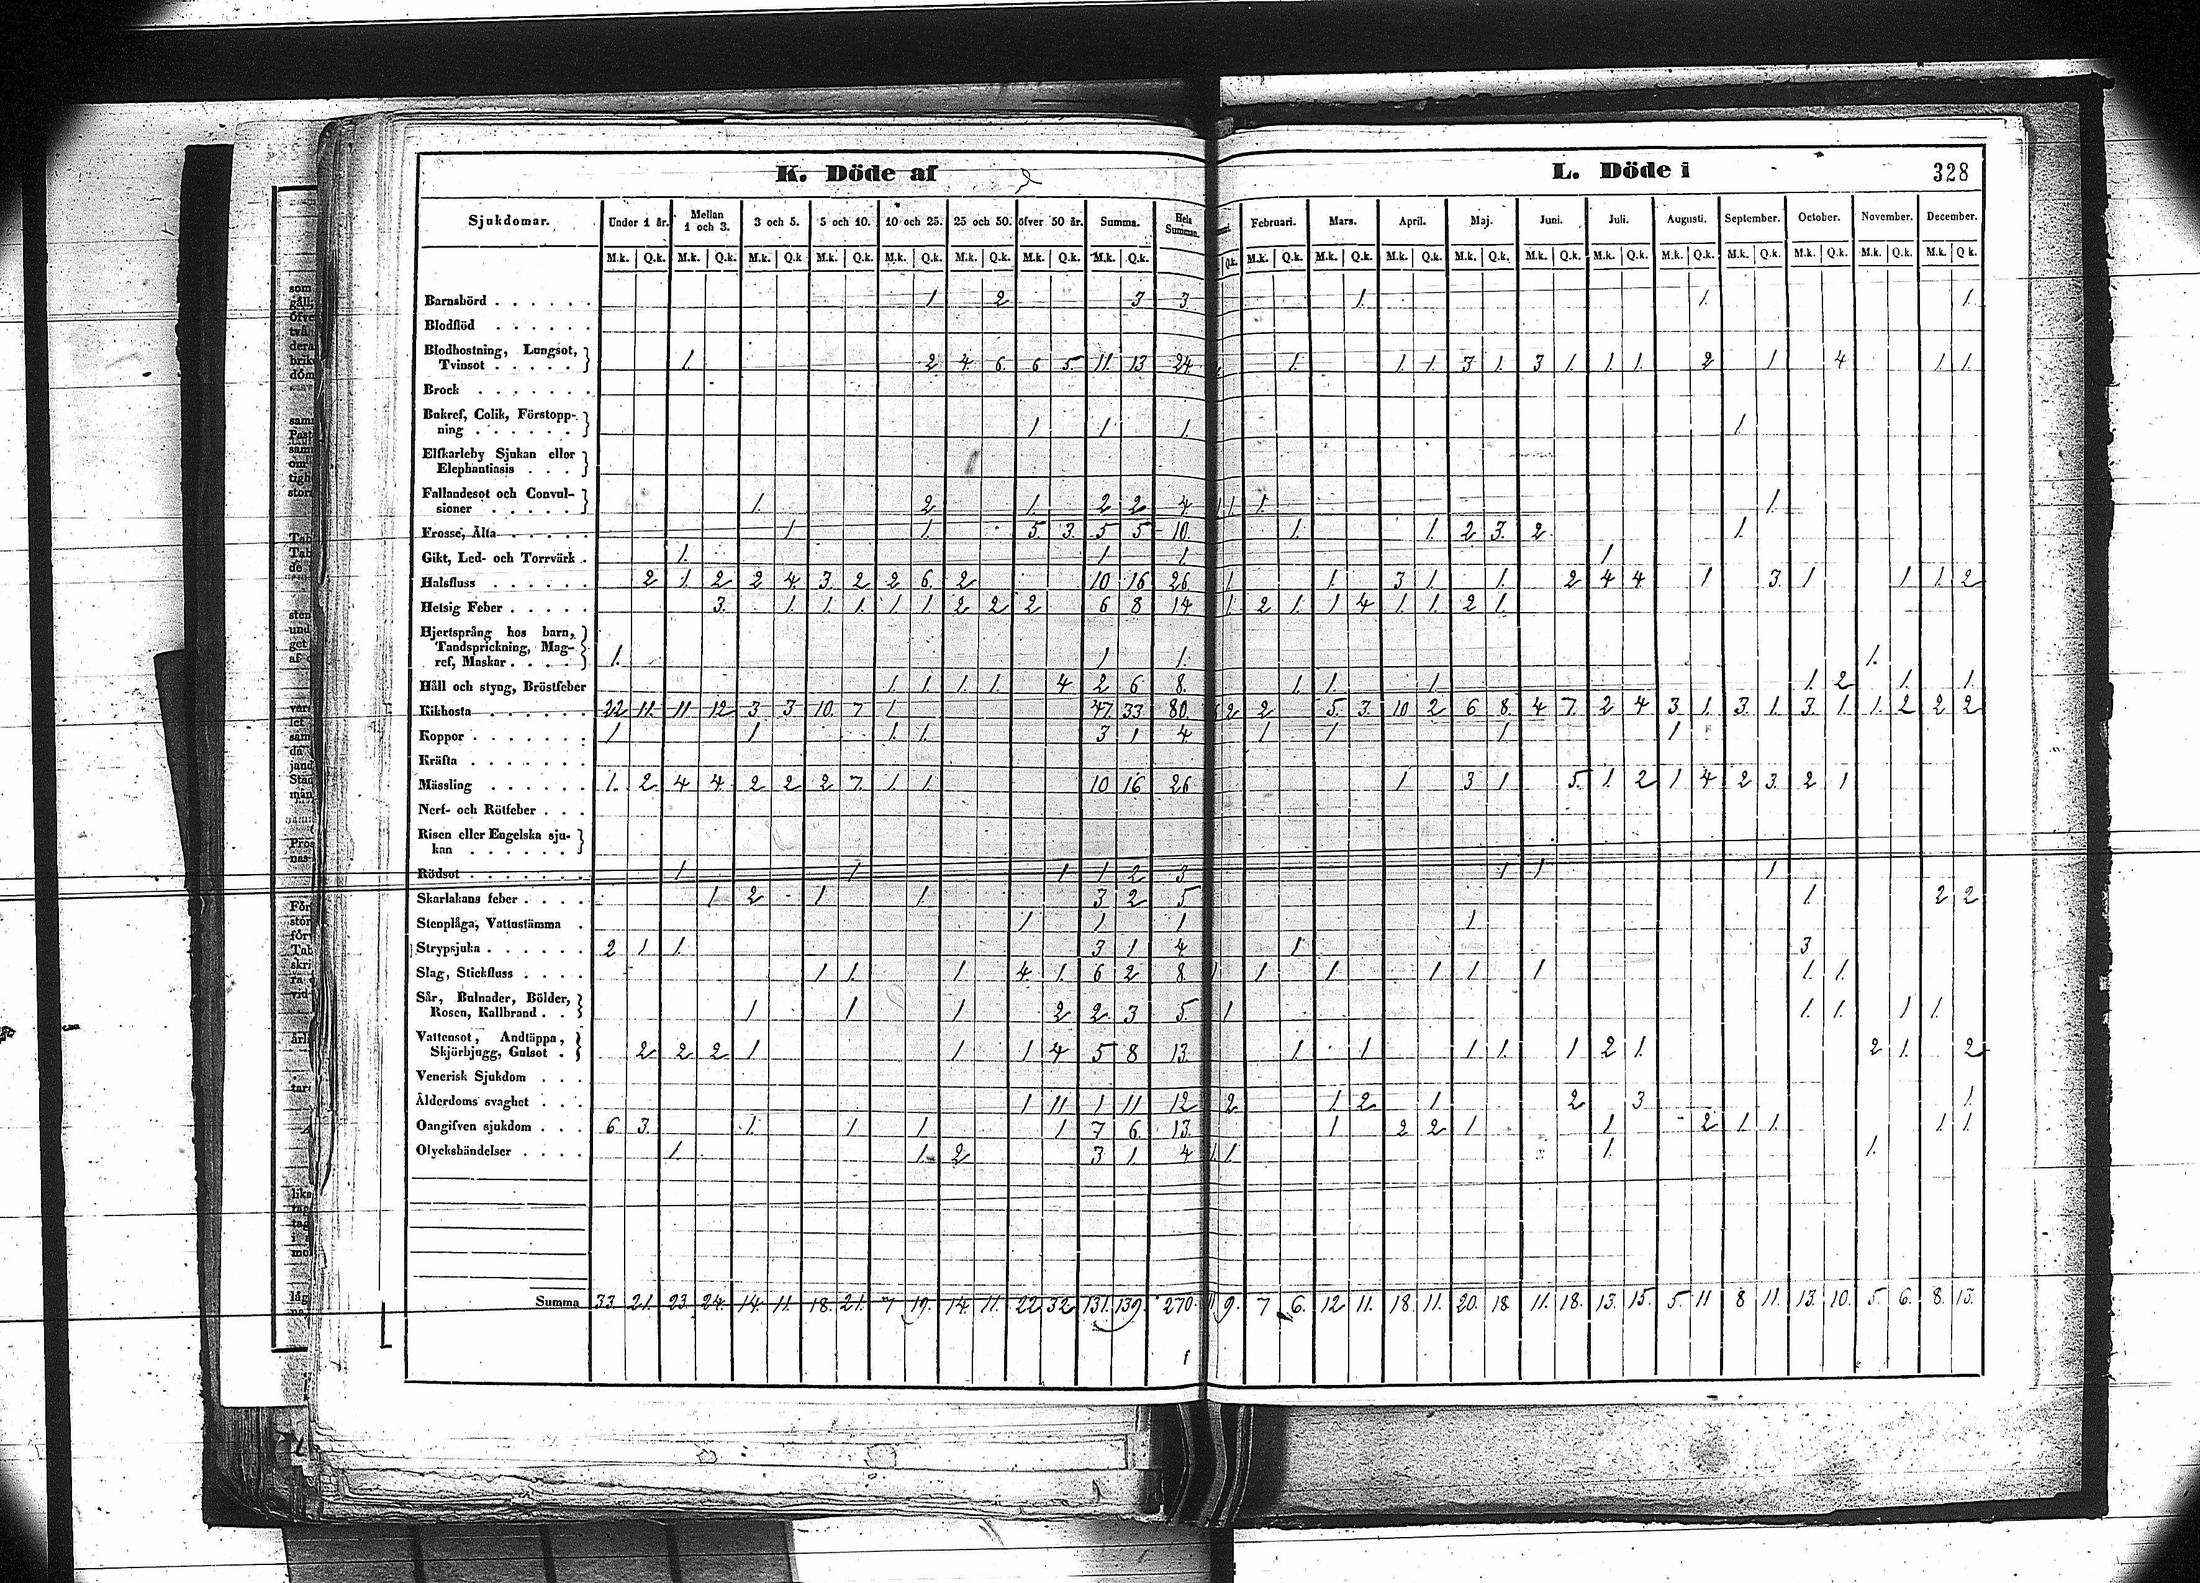 K. Döde af
L. Döde i
328
Sjukdomar. Under 1 år. Mellan 1 och 3. 3 och 5. 5 och 10. 10 och 25. 25 och 50. öfver 50 år. Summa. Hela Summan. Februari. Mars. April. Maj. Juni. Juli. Augusti. September. October. November. December.
M.k. Q.k. M.k. Q.k. M.k. Q.k M.k. Q.k. M.k. Q.k. M.k. Q.k. M.k. Q.k. M.k. Q.k. Q.k. M.k. Q.k. M.k. Q.k. M.k. Q.k. M.k. Q.k. M.k. Q.k. M.k. Q.k. M.k. Q.k. M.k. Q.k. M.k. Q.k. M.k. Q.k. M.k. Q k.
Barnsbörd . . . . . . 1 2 3 3 1. 1. 1.
Blodflöd . . . . . .
Blodhostning, Lungsot,
Tvinsot . . . . . 1. 2 4. 6. 6 5. 11. 13 24. 1. 1. 1. 3 1. 3 1. 1. 1. 2 1 4 1 1.
Brock . . . . . . .
Bukref, Colik, Förstopp-
ning . . . . . . 1 1. 1. 1.
Elfkarleby Sjukan eller
Elephantiasis . . .
Fallandesot och Convul-
sioner . . . . . 1. 2 1. 2 2 4 1 1. 1. 1
Frossa, Älta . . . . . 1 1. 5. 3. 5 5 10. 1. 1. 2 3. 2 1.
Gikt, Led- och Torrvärk . 1. 1 1. 1
Halsfluss . . . . . . 2 1. 2 2 4 3. 2 2 6. 2 10 16 26 1 1. 3 1. 1. 2 4 4 1 3. 1 1 1. 2
Hetsig Feber . . . . . 3. 1. 1. 1. 1. 1. 2 2 2 6 8 14 1 2 1. 1 4 1. 1. 2 1.
Hjertsprång hos barn,
Tandsprickning, Mag-
ref, Maskar . . . . 1. 1 1. 1.
Håll och styng, Bröstfeber 1. 1. 1. 1. 4 2 6 8. 1 1. 1 1. 2 1. 1.
Kikhosta . . . . . . 22 11. 11 12 3 3 10. 7 1 47 33 80. 2 2 5. 3. 10 2 6 8. 4 7. 2 4 3 1. 3. 1. 3 1. 1. 2 2 2
Koppor . . . . . . . 1 1 1 1. 3 1 4 1 1 1 1
Kräfta . . . . . . .
Mässling . . . . . . 1. 2 4 4 2 2 2 7. 1 1 10 16 26 1 3 1 5. 1. 2 1 4 2 3. 2 1
Nerf- och Rötfeber . . .
Risen eller Engelska sju-
kan . . . . . .
Rödsot . . . . . . . 1 1 1 1 2 3 1 1 1
Skarlakans feber . . . . 1 2 1 1 3 2 5 1 2 2
Stenplåga, Vattustämma . 1 1 1 1
Strypsjuka . . . . . . 2 1 1. 3 1 4 1 3
Slag, Stickfluss . . . . 1 1. 1 4. 1. 6 2 8 1 1 1. 1 1 1 1. 1.
Sår, Bulnader, Bölder,
Rosen, Kallbrand . . 1 1. 1 2 2 3 5. 1 1. 1. 1 1.
Vattensot, Andtäppa,
Skjörbjugg, Gulsot . 2 2 2 1 1 1 4 5 8 13. 1 1 1 1. 1 2 1. 2 1. 2
Venerisk Sjukdom . . .
Ålderdoms svaghet . . . 1 11 1 11 12 2 1. 2 1 2 3 1.
Oangifven sjukdom . . . 6 3. 1. 1 1 1 7 6. 13. 1 2 2 1 1 2 1 1 1 1
Olyckshändelser . . . . 1. 1. 2 3 1 4 1. 1. 1. 1.
Summa 33. 21. 23. 24. 14 11. 18. 21. 7 19. 14. 11. 22 32 131. 139. 270. 9. 7 6. 12 11. 18. 11. 20. 18 11. 18. 13. 15. 5. 11 8 11. 13. 10. 5. 6. 8. 13.